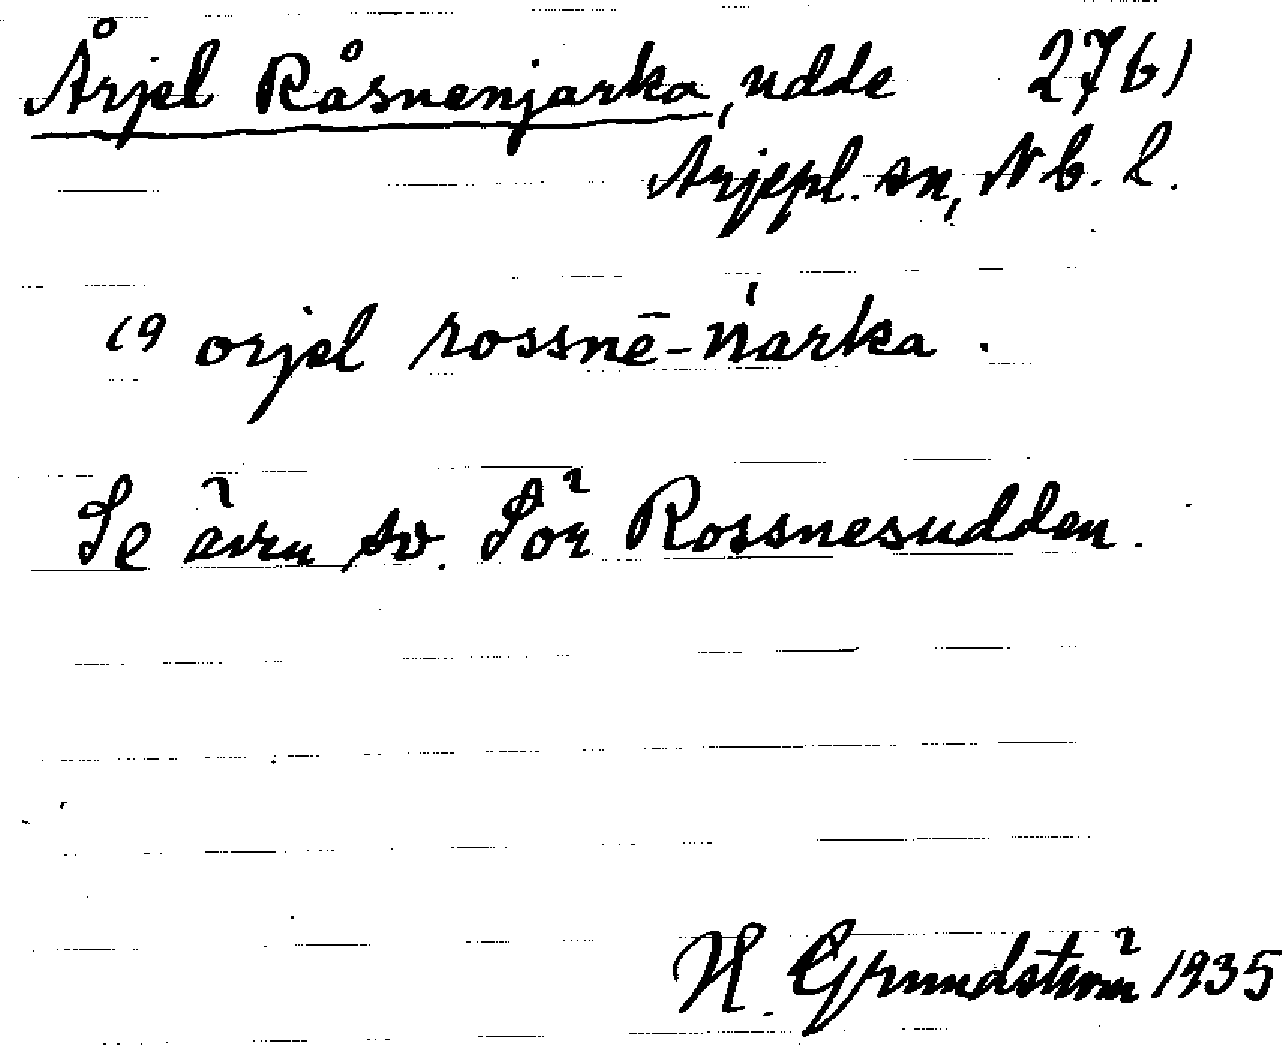 Årjel Råsnenjarka, udde 27b)
Arjepl. sn, Nb. l.
19 orjel rossnē-ńarka.
Se även sv. Sör Rossnesudden.
H. Grundström 1935